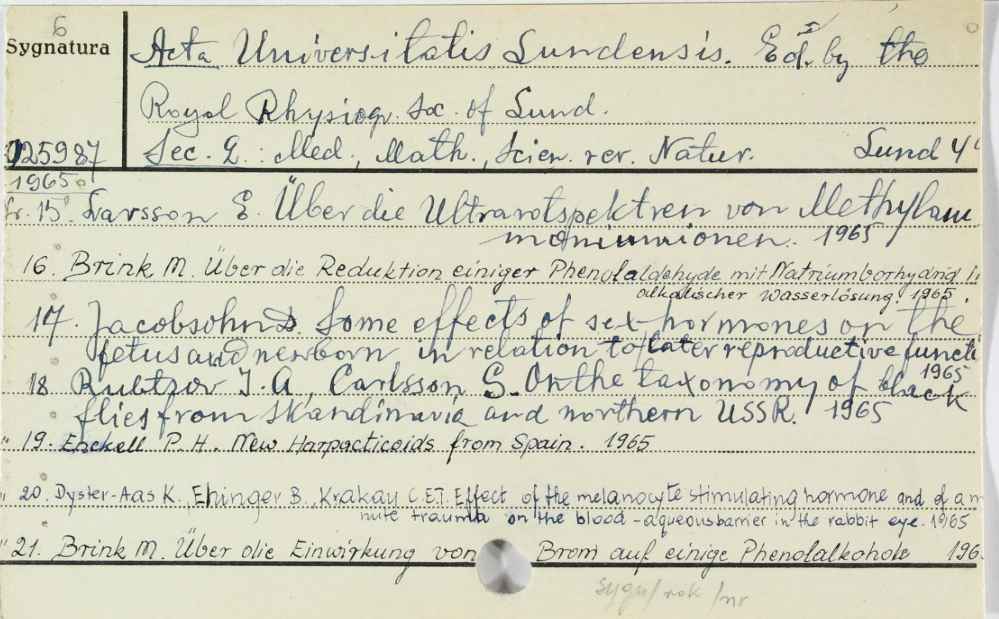 6
Sygnatura
Acta Universitatis Lundensis. Ed. by the
Royal Physiogr. Soc. of Lund.
025987 Sec. 2.: Med., Math., Scien. rer. Natur. Lund 4°
1965
nr. 15. Larsson E. Über die Ultrarotspektren von Methylam
moniumionen. 1965
16. Brink M. Über die Reduktion einiger Phenolaldehyde mit Natriumborhydrid in
alkalischer Wasserlösung. 1965
17. Jacobsohn D. Some effects of sex hormones on the
fetus and newborn in relation to later reproductive functi
1965
18 Rubtzov I. A., Carlsson G. On the taxonomy of black
flies from Skandinavia and northern USSR. 1965
" 19. Enckell P. H. New Harpacticoids from Spain. 1965
" 20. Dyster-Aas K., Ehinger B., Krakau C.E.T. Effect of the melanocyte stimulating hormone and of a m
nute trauma on the blood-aqueousbarrier in the rabbit eye. 1965
" 21. Brink M. Über die Einwirkung von Brom auf einige Phenolalkohole 196
sygn/rok/nr